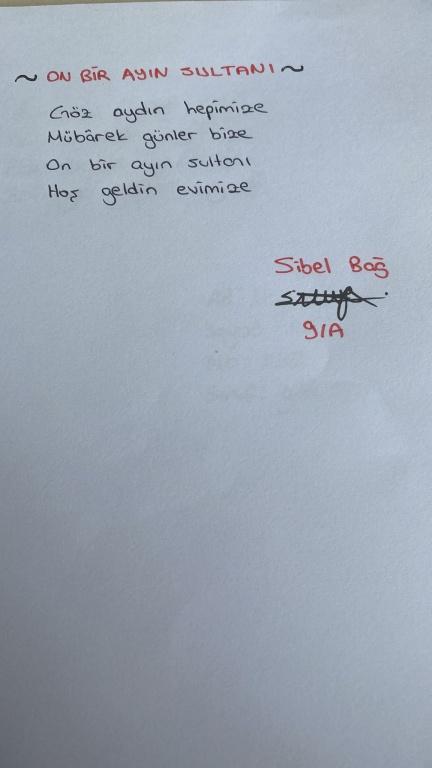 ~ ON BİR AYIN SULTANI ~
Göz aydın hepimize
Mübârek günler bize
On bir ayın sultanı
Hoş geldin evimize
Sibel Bağ
9/A